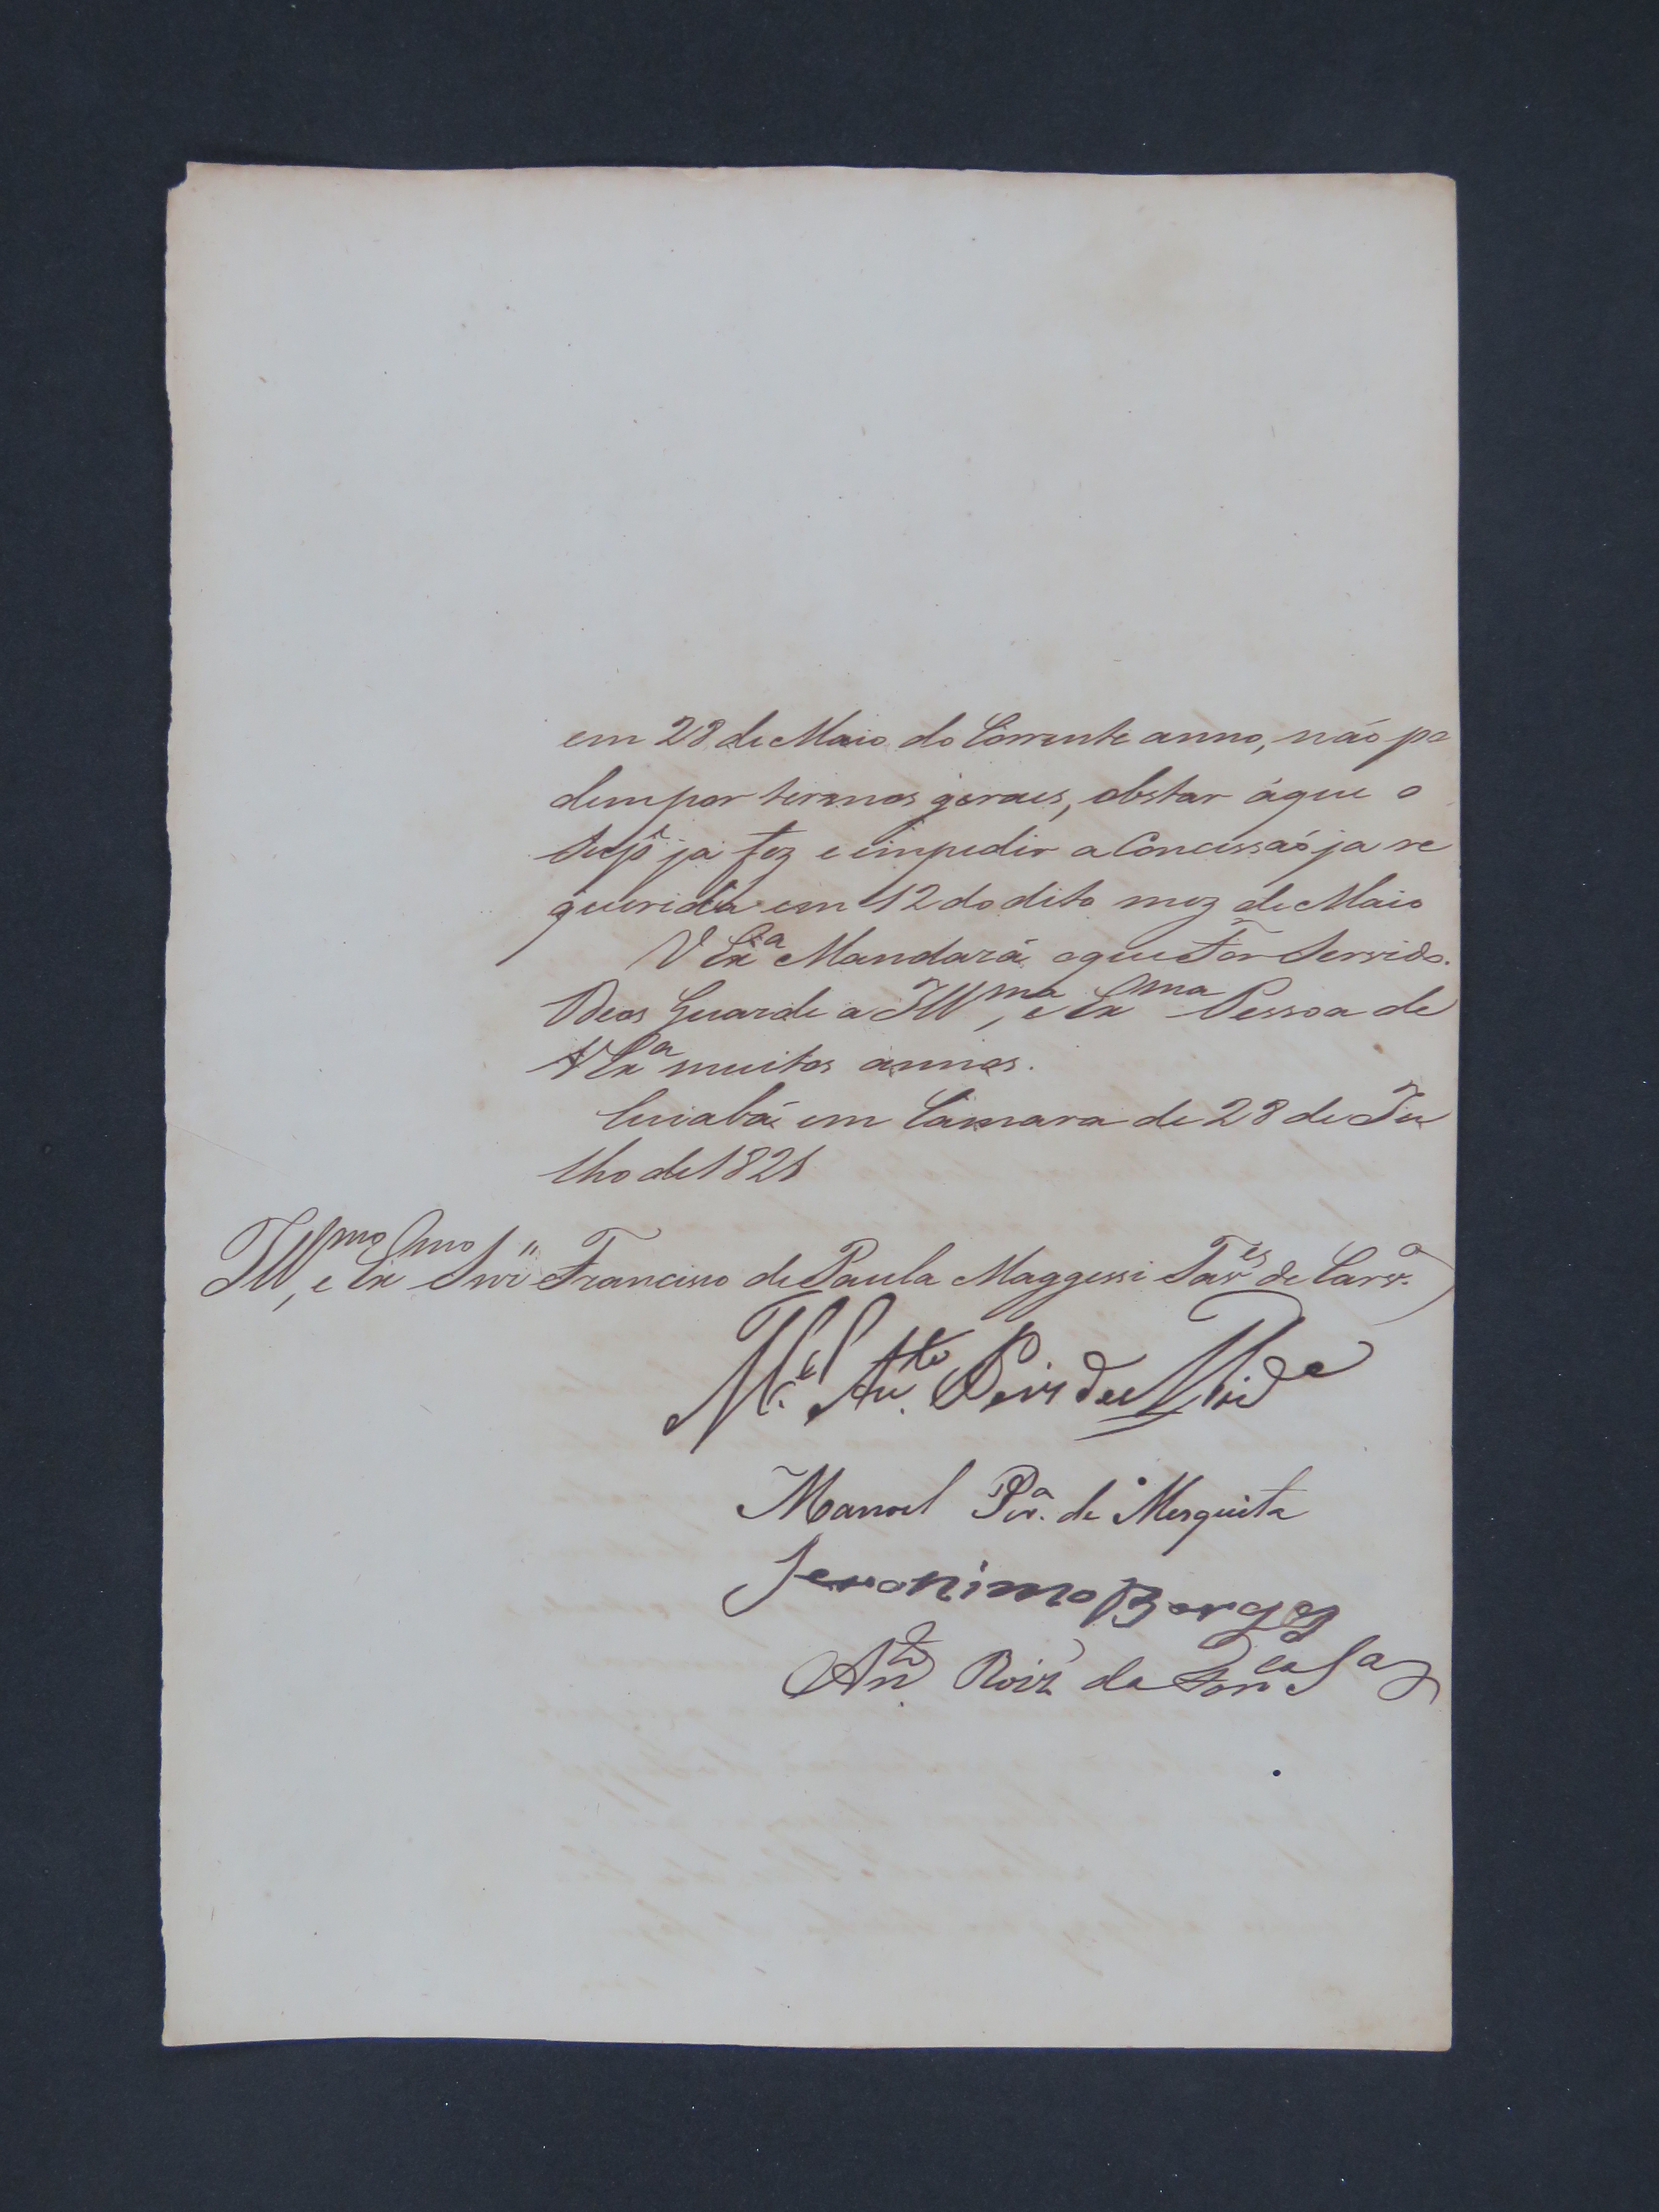 em 28 de Maio do Corrente anno, não po
dem por termos geraes, obstar áque o
Supe ja fez e impedir a Concissaõ ja re
querida em 12 do dito mez de Maio
V Exa Mandará oque For Servido.
Deos Guarde a Illma, e Exma Pessoa de
V Exa muitos annos.
Cuiabá em Camara de 28 de Ju
lho de 1821
Illmo, e Exmo Snr Francisco de Paula Maggessi Tavres de Carvo
Mel Anto Pirz de Mirda
Manoel Pera de Mesquita
Jeronimo Borges
Anto Roiz da Fonca